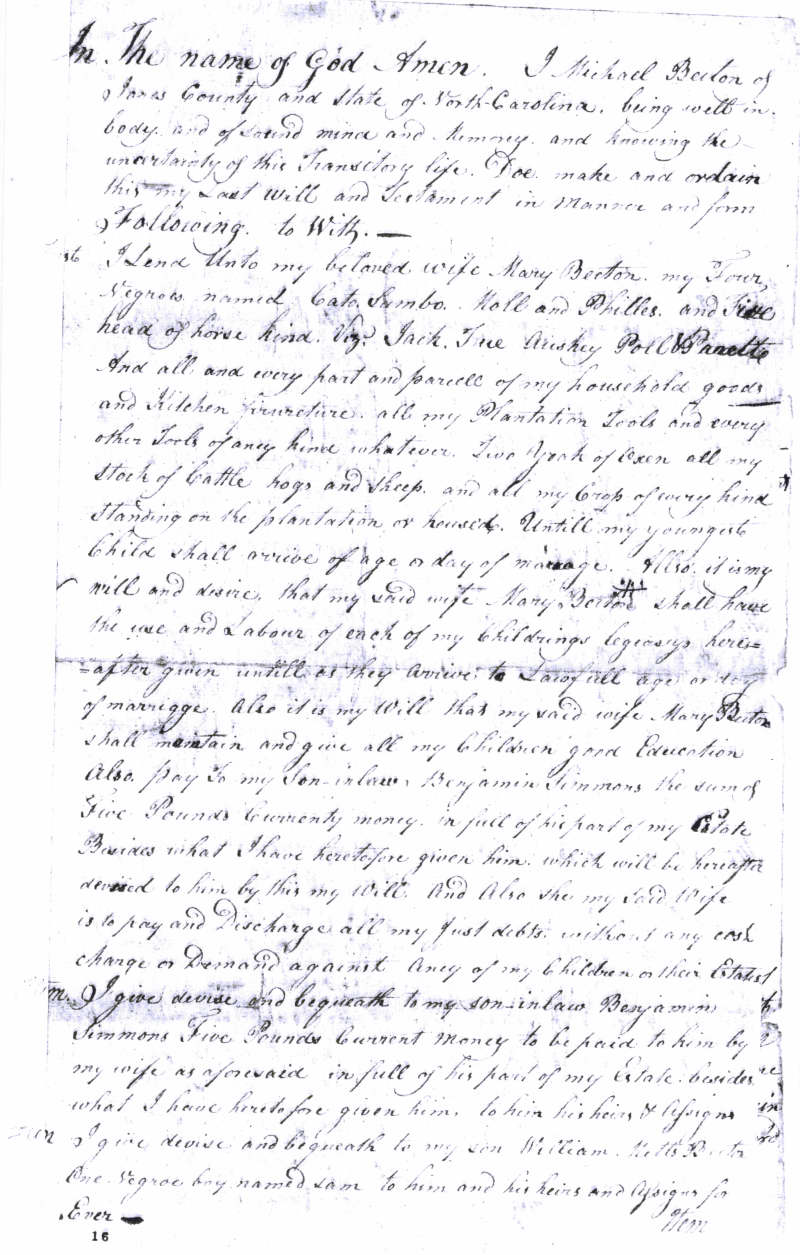 In. The name of God Amen. I Michael Becton of
Jones County and State of North-Carolina. being well in.
body. and of sound mind and Memorey. and knowing the
uncertainty of this Transitory life. Doe make and ordain
this my Last Will and Testament in Manner and form
Following. to With. —
I Lend Unto my beloved wife Mary Becton. my Four
Negroes named Cato. Sambo. Moll and Philles. and Five
head of horse kind. Viz. Jack. Poll &
And all and every part and parcell of my household goods
and Kitchen firureture. all my Plantation Tools and every
other Tools of aney kind whatever. Two Yoak of Oxen all my
Stock of Cattle hogs and Sheep. and all my Crop of every kind
Standing on the plantation or housed. Untill my youngest
Child shall arrive of age or day of mariage. Also. it is my
will and desire. that my said wife Mary Becton shall have
the use and Labour of each of my Childrings legasys here=
=after given untill as they arrive to Lawfull age or day
of marrigge. Also it is my Will that my said wife Mary Becton
shall maintain and give all my Children good Education
Also. pay To my Son-inlaw. Benjamin Simmons the sum of
Five Pounds Currenty money. in full of his part of my Estate
Besides what I have heretofore given him. which will be hereafter
devised to him by this my Will. And Also she my Said Wife
is to pay and Discharge all my Just debts. without any cost
charge or Demand against Aney of my Children or their Estates
I give devise and bequeath to my son-inlaw Benjamin
Simmons Five Pounds Current Money to be paid to him by
my wife as aforesaid in full of his part of my Estate. besides
what I have heretofore given him. to him his heirs & Assigns
I give devise and bequeath to my son William
One Negroe boy named Sam to him and his heirs and Assigns for
Ever —
Item
16